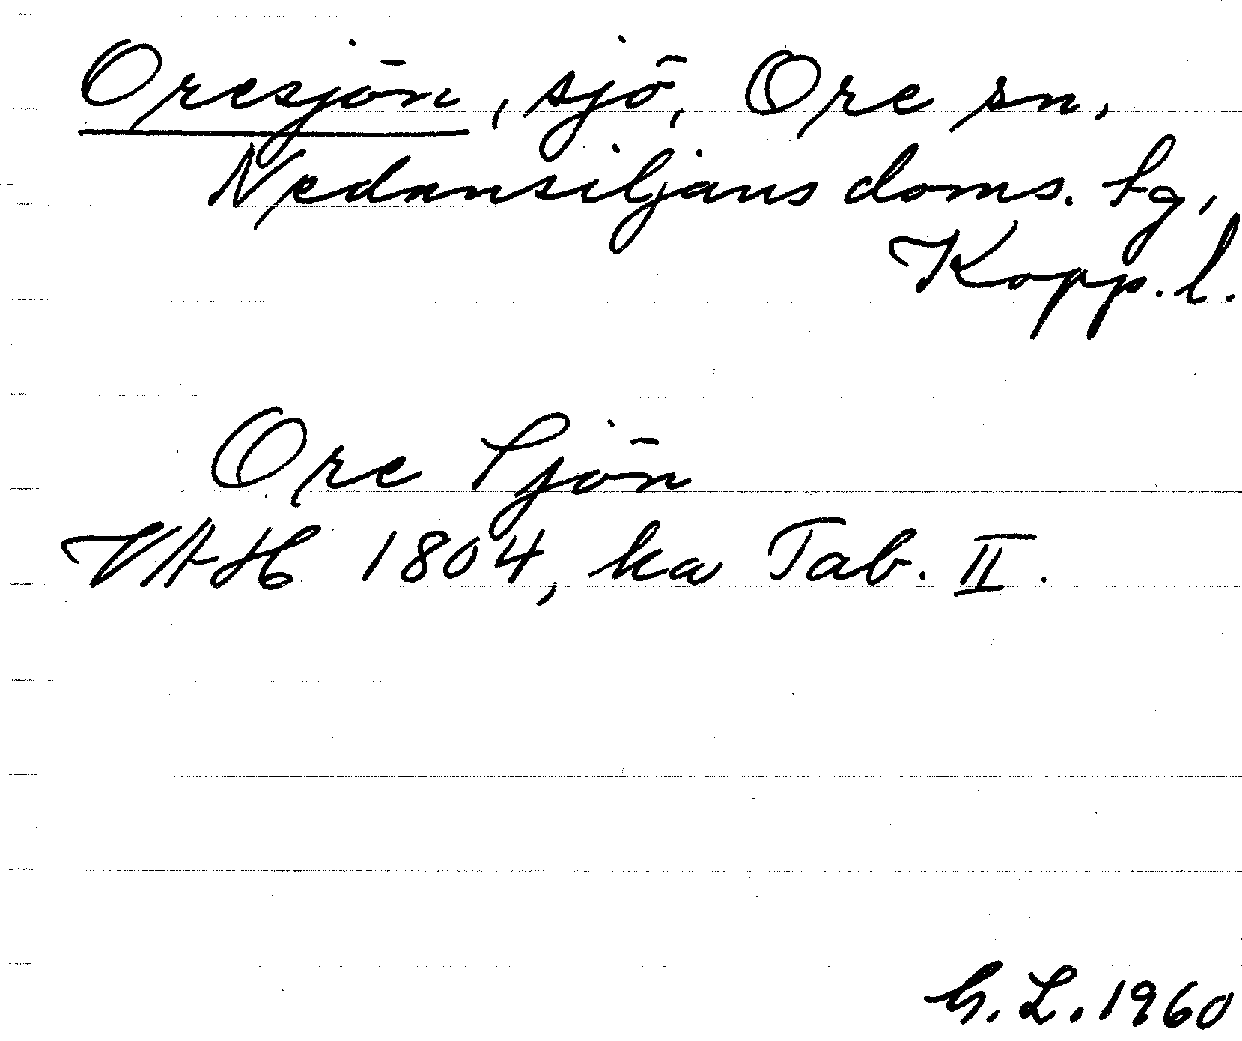 Oresjön, sjö, Ore sn,
Nedansiljans doms. tg,
Kopp. l.
Ore Sjön
VAH 1804, ka Tab. II.
G. L. 1960